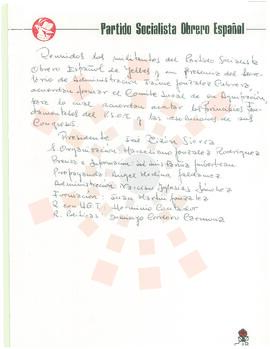 Partido Socialista Obrero Español
Reunidos los militantes del Partido Socialista
Obrero Español de Yeles y en Presencia del Secre
tario de Administración Jaime González Cabrera,
acuerdan formar el Comité Local de su Agrupación,
para lo cual acuerdan acatar las Normas Fun-
damentales del P.S.O.E. y las resoluciones de sus
Congresos.
Presidente José Sierra
S. Organización: Marceliano González Rodríguez
Prensa e Información
Propaganda: Angel Medina
Administración: Narciso Iglesias Sánchez
Formación: Juan Martín González
R. con U.G.T. Herminio
R. Políticas: Santiago Cordero